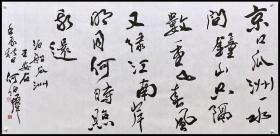 京口瓜洲一水
間鐘山只隔
數重山春風
又綠江南岸
明月何時照
我還
王安石
泊船瓜洲